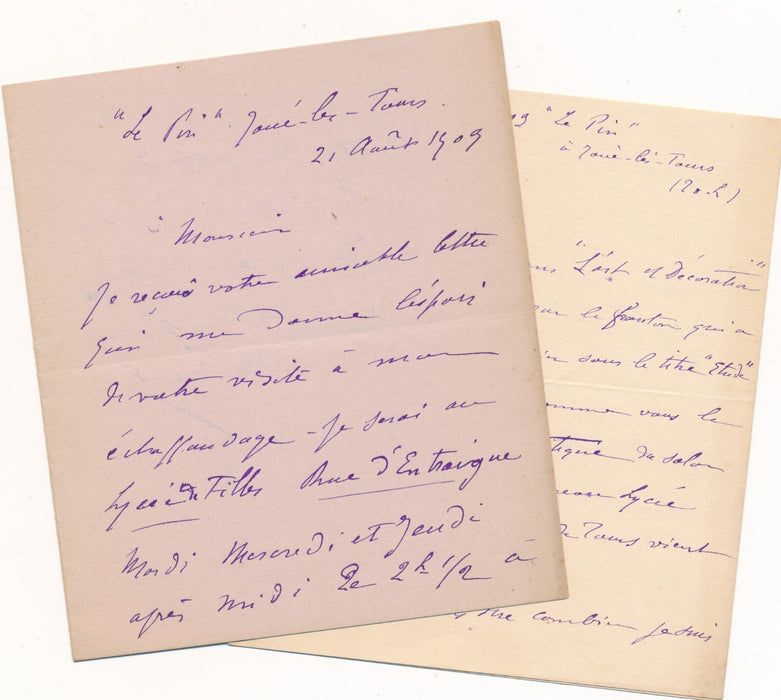 "Le Pin" Joué-les-Tours.
21 Août 1909
Monsieur
Je reçois votre aimable lettre
qui me donne l'éspoir
de votre visite à mon
échaffaudage - Je serai au
Lycée de Filles Rue d'Entraigue
Mardi Mercredi et Jeudi
après midi de 2h 1/2 à
09 "Le Pin"
à Joué-lès-Tours
(I&L)
"L'art et Décoration"
sur le fronton qui a
sous le titre "Etude"
comme vous le
du salon
Lycée
de Tours vient
dire combien je suis